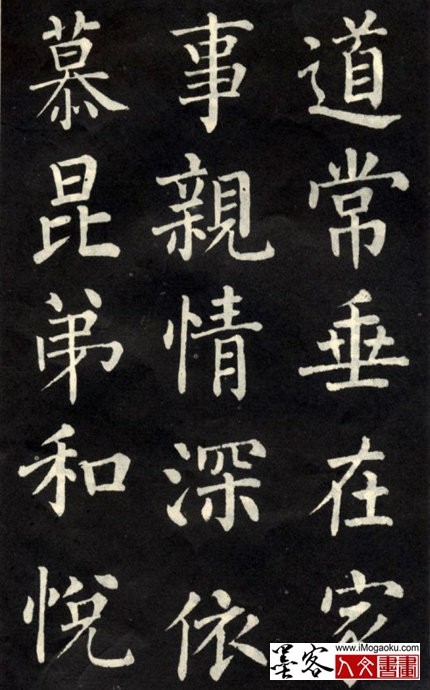 道常垂在家
事親情深依
慕昆弟和悅
墨客
www.iMogaoku.com
人文書畫